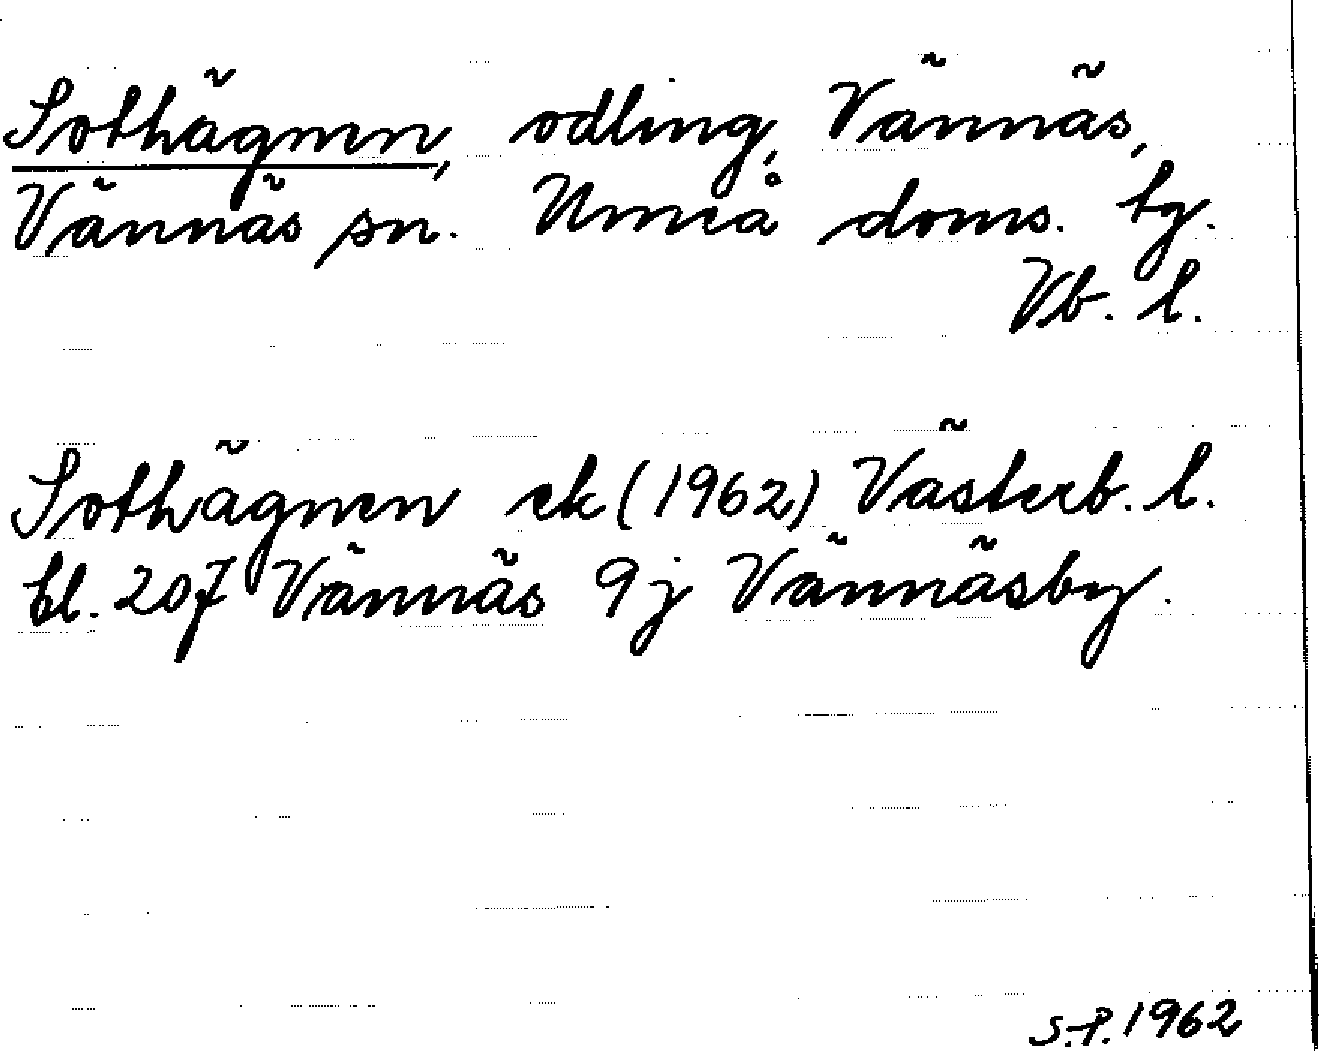 Sothägnen, odling, Vännäs,
Vännäs sn. Umeå doms. tg.
Vb. l.
Sothägnen ek (1962) Västerb. l.
bl. 207 Vännäs 9j Vännäsby.
S.P. 1962